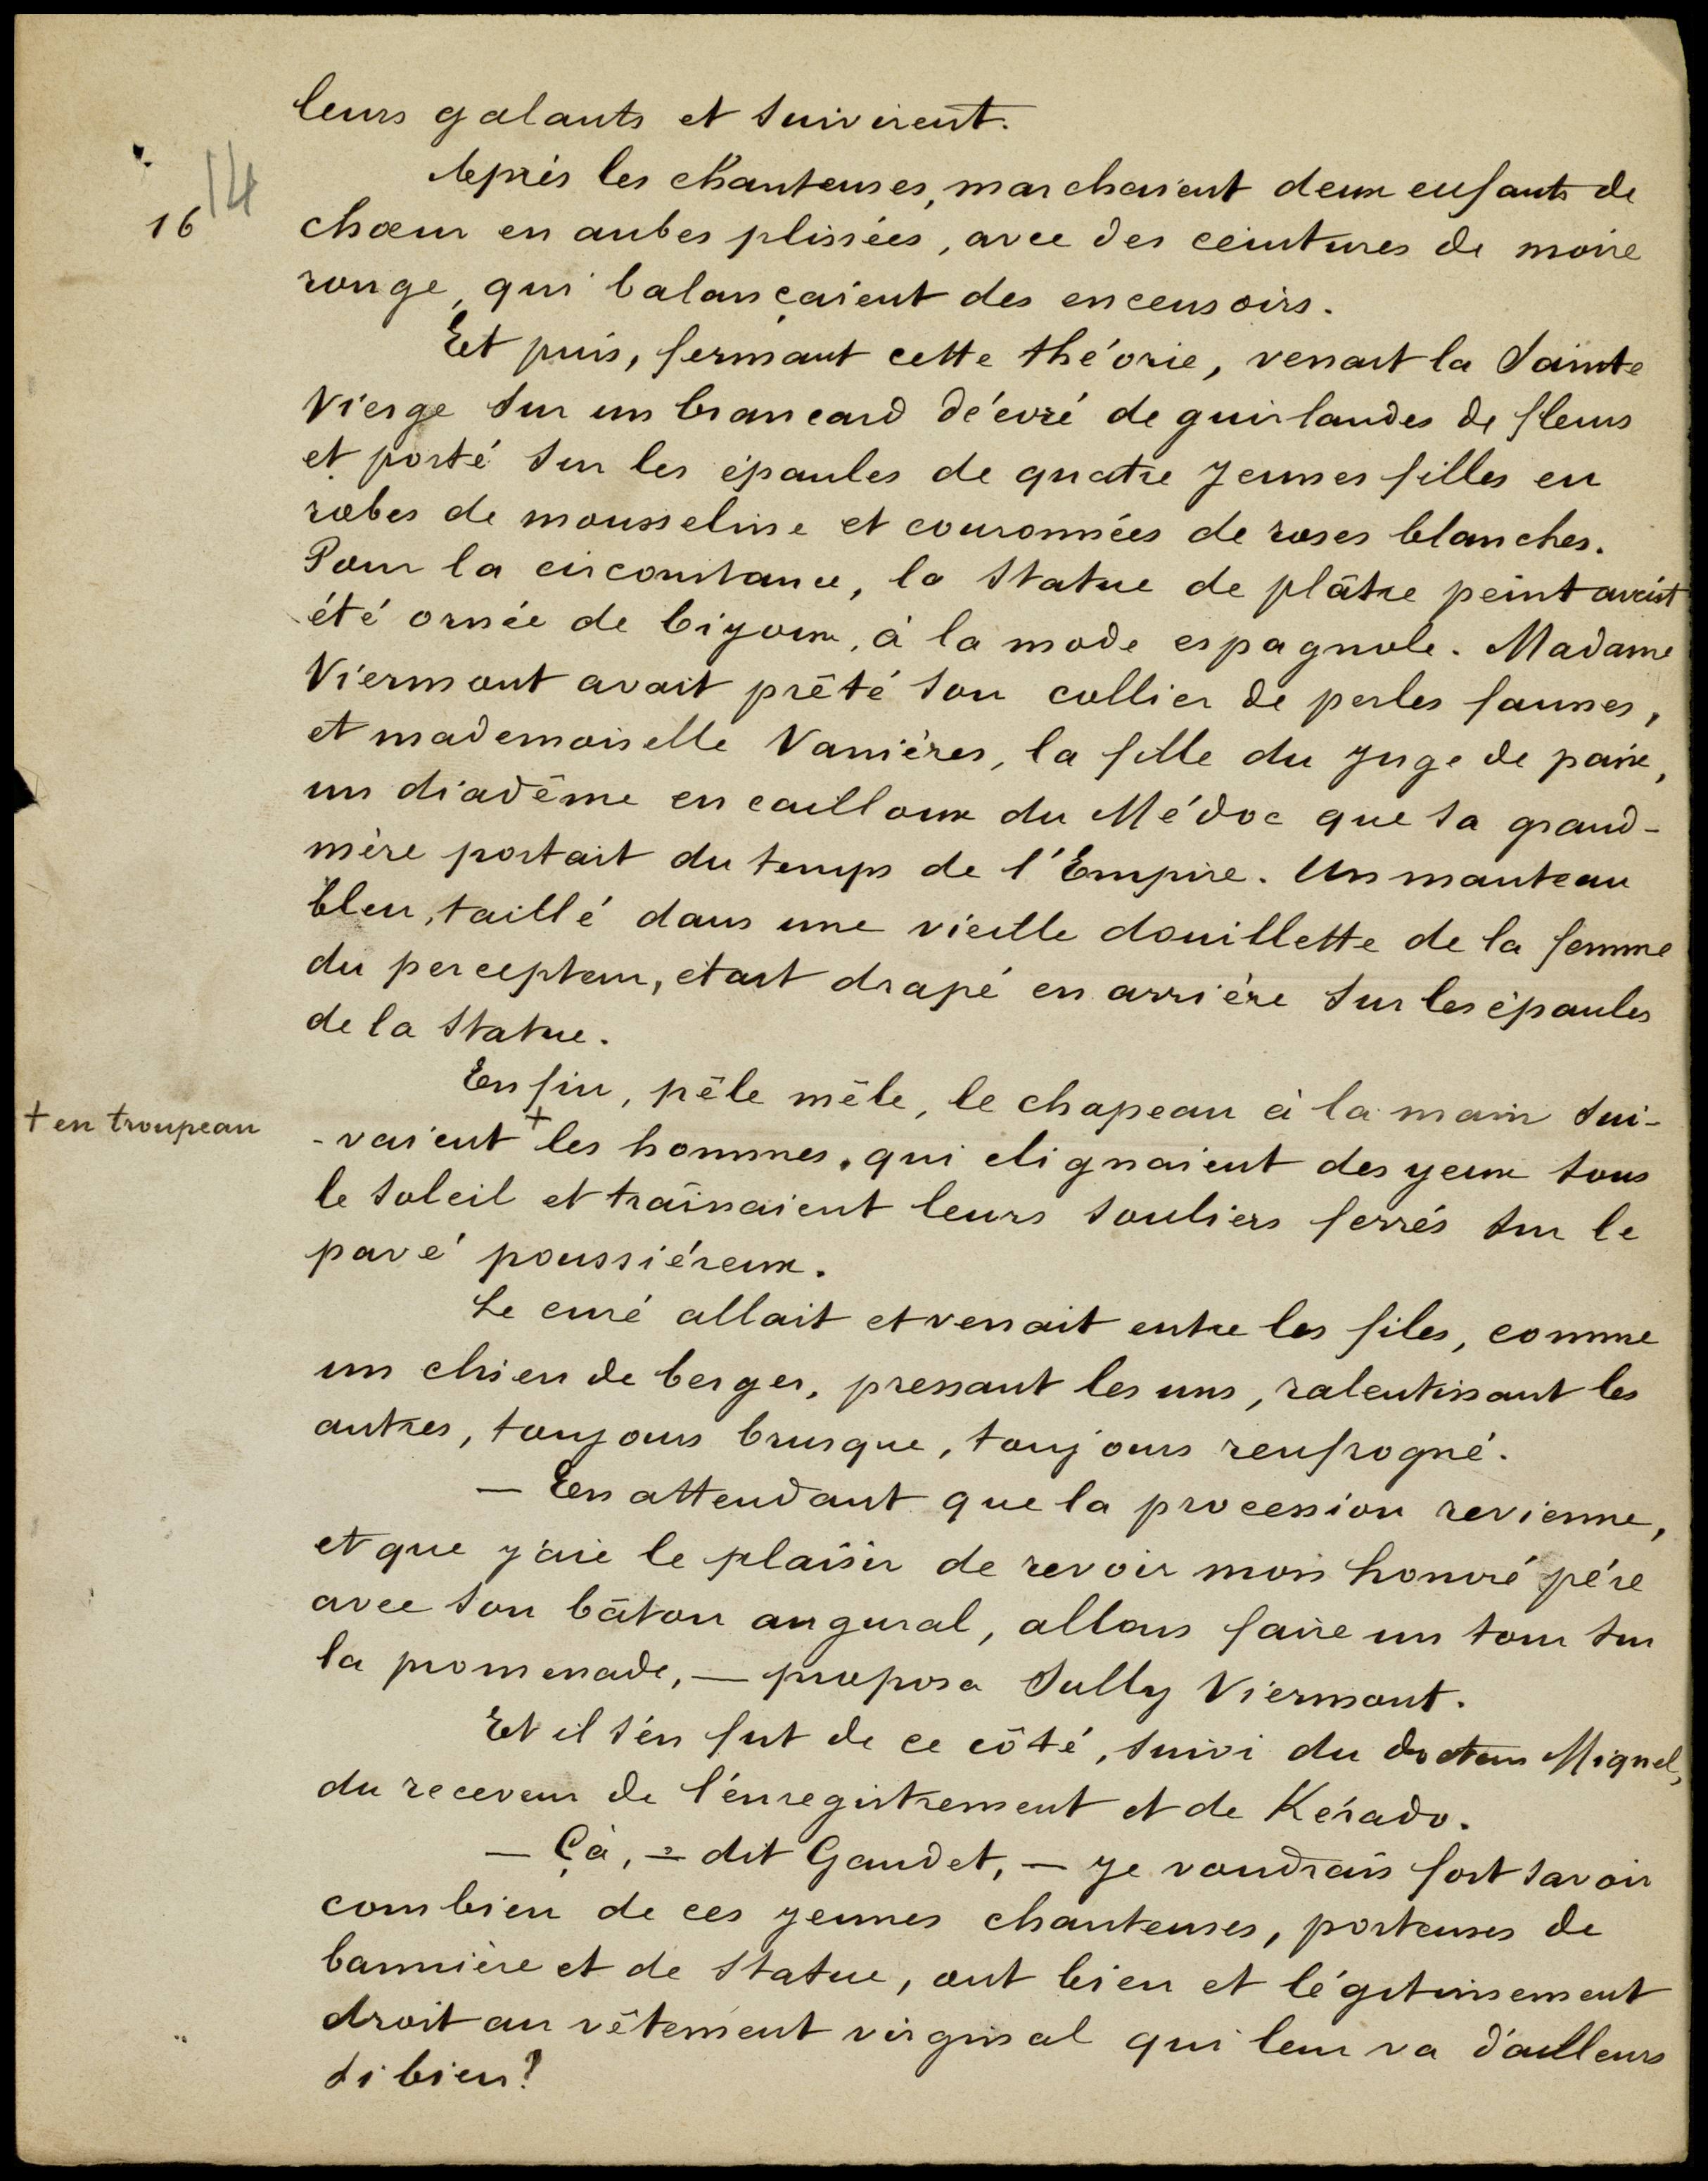 leurs galants et suivirent.
14
Après les chanteuses, marchaient deux enfants de
16
chœur en aubes plissées, avec des ceintures de moire
rouge, qui balançaient des encensoirs.
Et puis, fermant cette théorie, venait la Sainte
Vierge sur un brancard décoré de guirlandes de fleurs
et porté sur les épaules de quatre jeunes filles en
robes de mousseline et couronnées de roses blanches.
Pour la circonstance, la statue de plâtre peint avait
été ornée de bijoux, à la mode espagnole. Madame
Viermont avait prêté son collier de perles fausses,
et mademoiselle Vanières, la fille du juge de paix,
un diadème en cailloux du Médoc que sa grand-
mère portait du temps de l'Empire. Un manteau
bleu, taillé dans une vieille douillette de la femme
du percepteur, était drapé en arrière sur les épaules
de la statue.
Enfin, pêle mêle, le chapeau à la main sui-
+ en troupeau
-vaient + les hommes, qui clignaient des yeux sous
le soleil et traînaient leurs souliers ferrés sur le
pavé poussiéreux.
Le curé allait et venait entre les files, comme
un chien de berger, pressant les uns, ralentissant les
autres, toujours brusque, toujours renfrogné.
— En attendant que la procession revienne,
et que j'aie le plaisir de revoir mon honoré père
avec son bâton augural, allons faire un tour sur
la promenade, — proposa Sully Viermont.
Et il s'en fut de ce côté, suivi du docteur Miquel,
du receveur de l'enregistrement et de Kérado.
— Çà, — dit Gaudet, — je voudrais fort savoir
combien de ces jeunes chanteuses, porteuses de
bannière et de statue, ont bien et légitimement
droit au vêtement virginal qui leur va d'ailleurs
si bien?